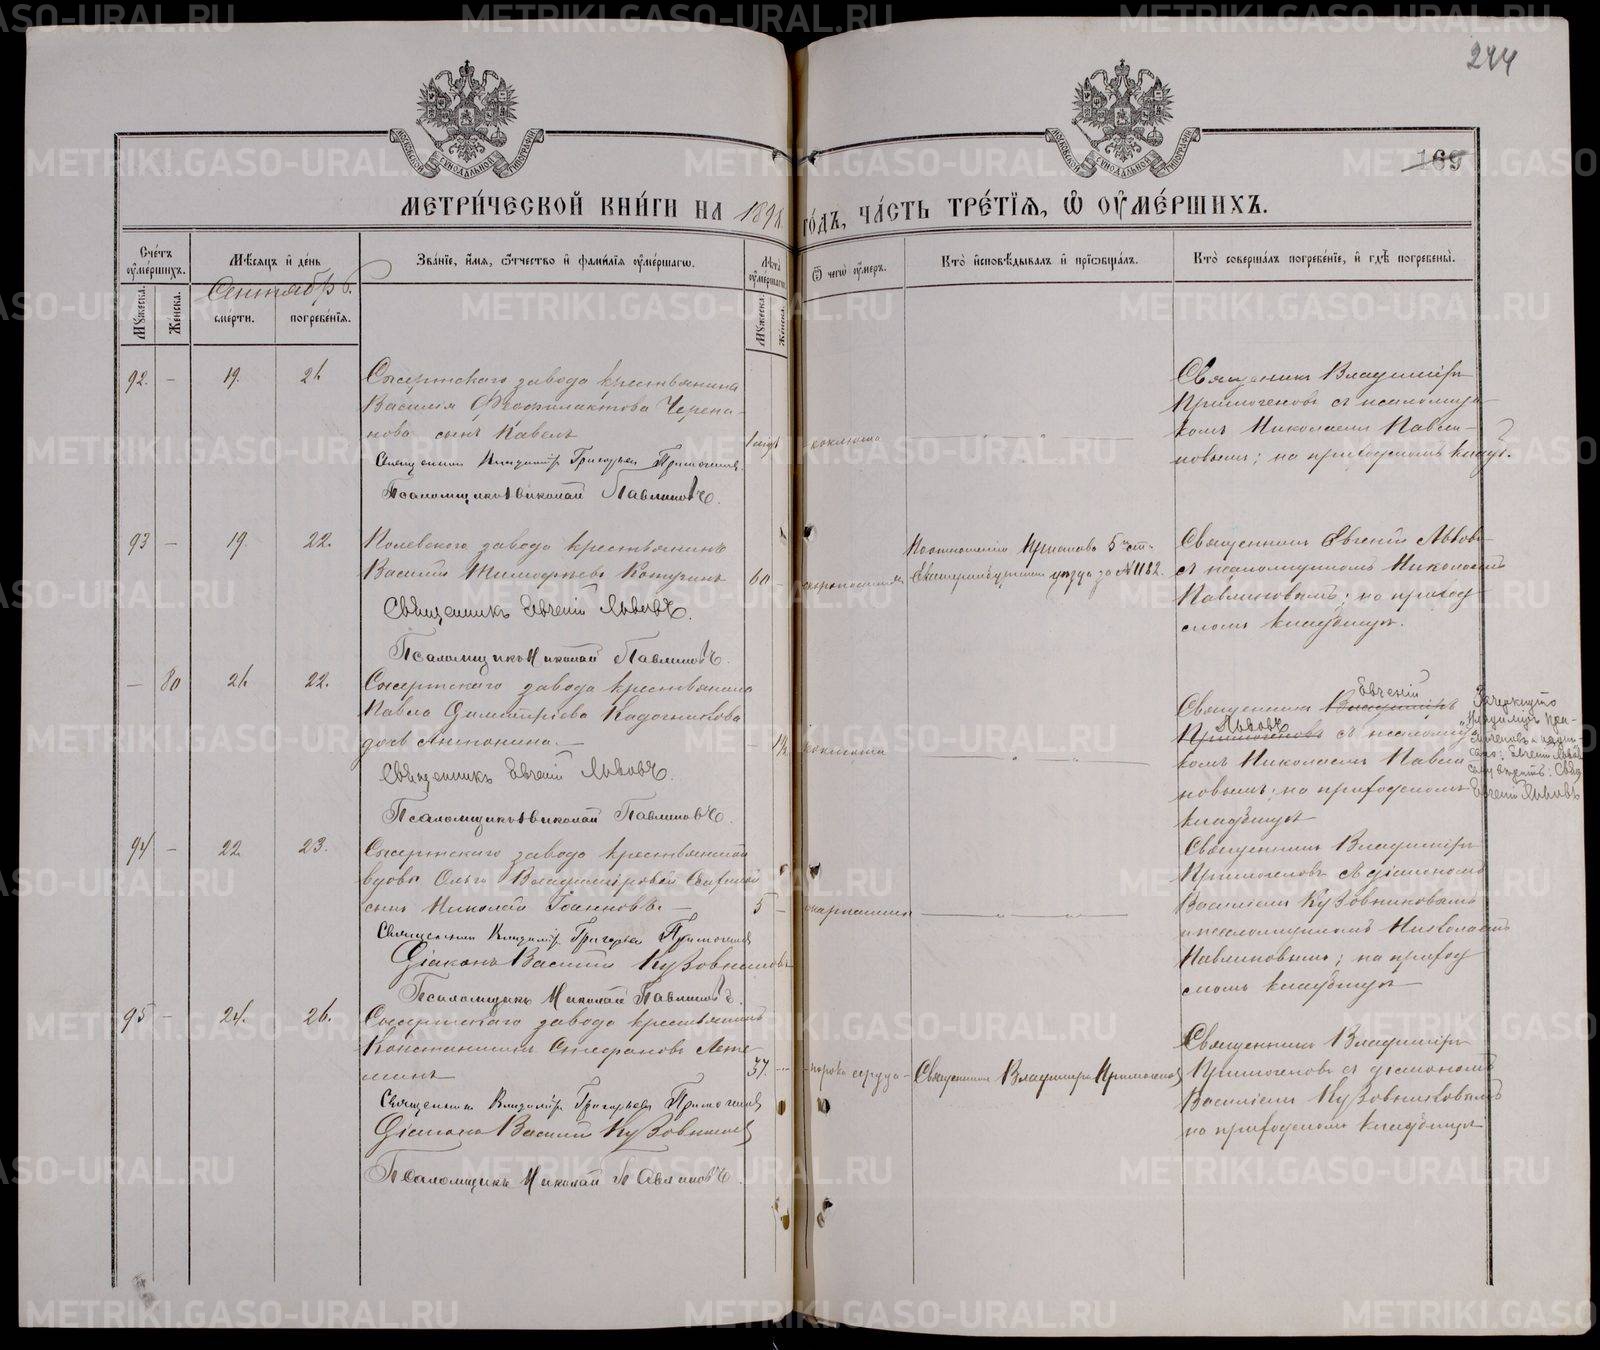 244
169
МЕТРИ́ЧЕСКОЙ КНИ́ГИ НА 1898 ГО́ДЪ, ЧА́СТЬ ТРЕ́ТІѦ, Ѽ ОУМЕ́РШИХЪ.
Сче́тъ оумершихъ.
Мꙋжеска.
Же́нска.
Мѣ́сѧцъ и де́нь
Сентябрь.
сме́рти.
погребе́нїѧ.
Зва́нїе, и́мѧ, ѻ́тчество и фамилїѧ оуме́ршагѡ.
Лѣ́та оуме́ршагѡ.
Мꙋжеска.
Же́нска.
Ѿ чегѡ̀ оу́меръ.
Кто̀ исповѣ́дывалъ и прїѡбща́лъ.
Кто̀ соверша́лъ погребе́нїе, и гдѣ̀ погребены̀.
92. - 19. 21.
Сысертскаго завода крестьянина
Василія Феофилактова Черепа-
нова сынъ Павелъ
Священникъ Владиміръ Григорьевъ Примогеновъ
Псаломщикъ Николай Павлиновъ.
коклюша
Священникъ Владиміръ
Примогеновъ съ псаломщи-
комъ Николаемъ Павли-
новымъ; на приходскомъ кладб.
93 - 19. 22.
Полевского завода крестьянинъ
Василій Тимофѣевъ
Священникъ Евгеній Львовъ.
Псаломщикъ Николай Павлиновъ.
60 -
По отношенію Пристава 5 ст.
Екатеринбургскаго уѣзда за № 1182.
Священникъ Евгеній Львовъ
съ псаломщикомъ Николаемъ
Павлиновымъ; на приход
скомъ кладбищѣ.
- 80 21. 22.
Сысертскаго завода крестьянина
Павла Димитріева Кадочникова
дочь Антонина.-
Священникъ Евгеній Львовъ.
Псаломщикъ Николай Павлиновъ.
коклюша
Священникъ Владиміръ Евгеній
Примогеновъ Львовъ съ псаломщи
комъ Николаемъ Павли
новымъ; на приходскомъ
кладбищѣ
Зачеркнуто
Владиміръ При-
могеновъ и напи-
сано: Евгеній Львовъ
Свящ
Евгеній Львовъ
94 - 22 23.
Сысертскаго завода крестьянской
вдовы Ольги Владиміровой
сынъ Николай Іоанновъ.-
Священникъ Владиміръ Григорьевъ Примогеновъ
Діаконъ Василій Кузовниковъ
Псаломщикъ Николай Павлиновъ.
5 -
скарлатины
Священникъ Владиміръ
Примогеновъ съ діакономъ
Василіемъ Кузовниковымъ
и псаломщикомъ Николаемъ
Павлиновымъ; на приход
скомъ кладбищѣ
95 - 24. 26.
Сысертскаго завода крестьянинъ
Константинъ Стефановъ Лете-
минъ
Священникъ Владиміръ Григорьевъ Примогеновъ
Діаконъ Василій Кузовниковъ
Псаломщикъ Николай Павлиновъ.
37. -
порока сердца
Священникъ Владиміръ Примогеновъ
Священникъ Владиміръ
Примогеновъ съ діакономъ
Василіемъ Кузовниковымъ
на приходскомъ кладбищѣ
METRIKI.GASO-URAL.RU